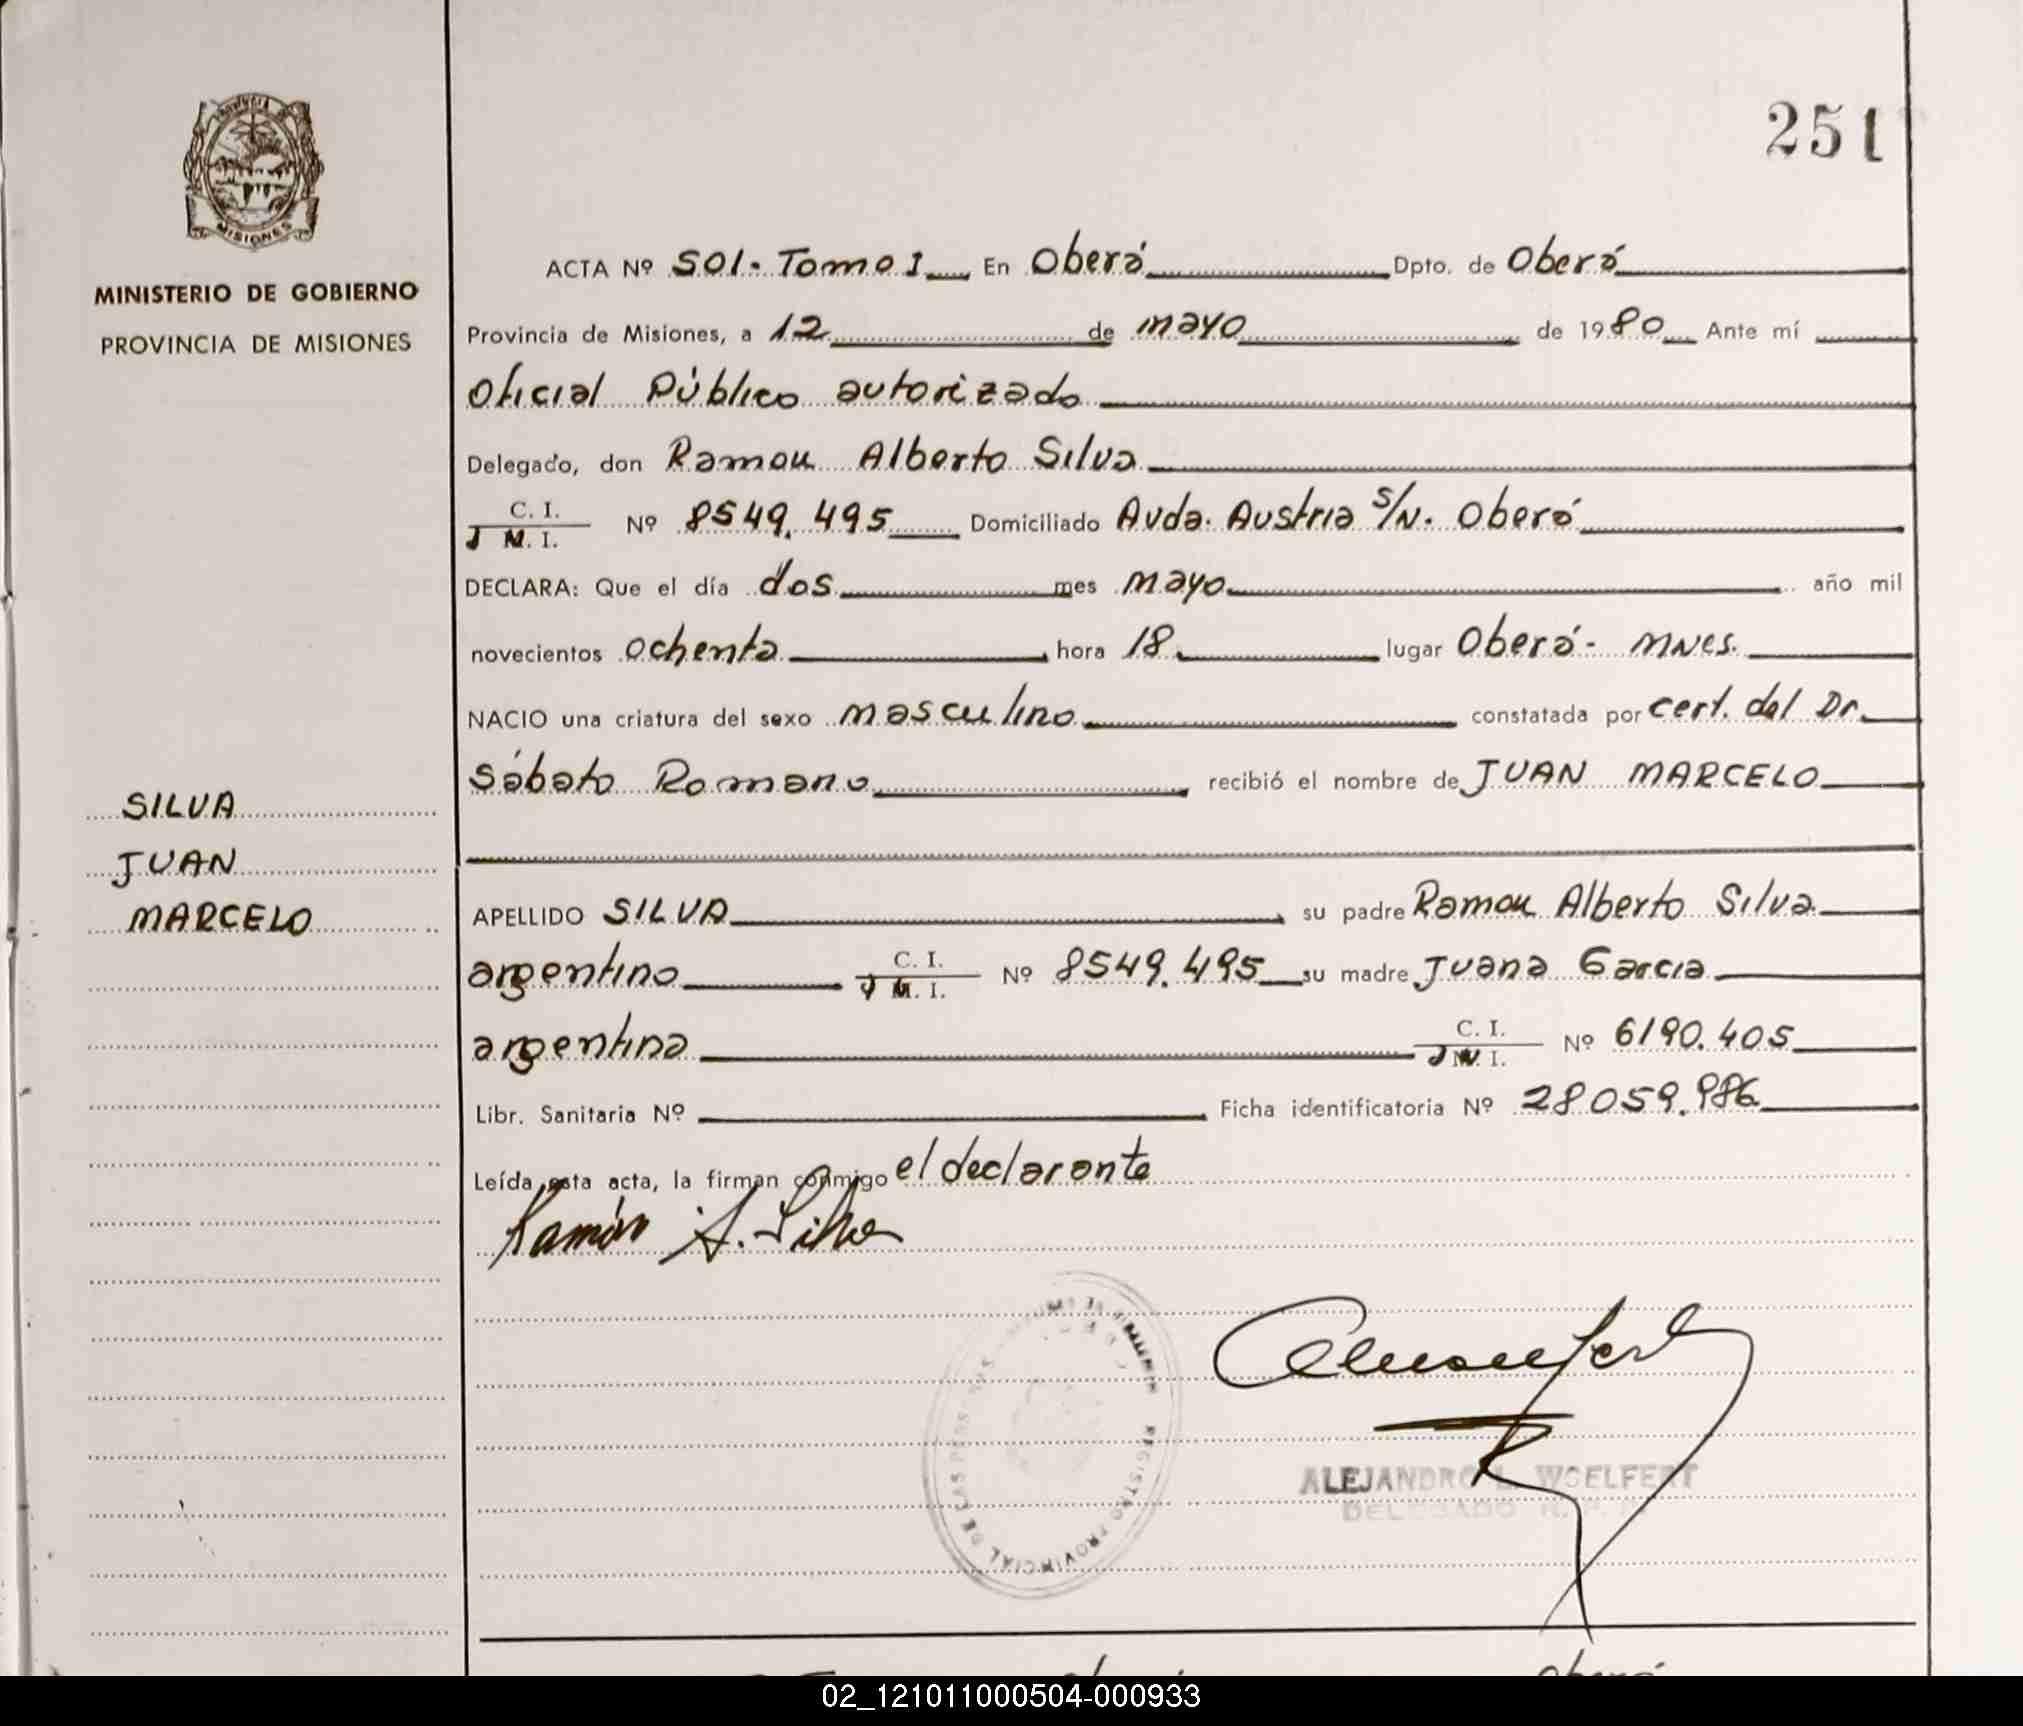 251
PROVINCIA
MISIONES
MINISTERIO DE GOBIERNO
PROVINCIA DE MISIONES
SILVA
JUAN
MARCELO
ACTA Nº 501.- Tomo I En Oberá Dpto. de Oberá
Provincia de Misiones, a 12 de mayo de 1980 Ante mí
Oficial Público autorizado
Delegado, don Ramon Alberto Silva
C. I.
M. I. Nº 8549.495 Domiciliado Avda. Austria s/N. Oberá
DECLARA: Que el día dos mes mayo año mil
novecientos ochenta hora 18 lugar Oberá - MNES.
NACIO una criatura del sexo masculino constatada por cert. del Dr.
Sábato Romano recibió el nombre de JUAN MARCELO
APELLIDO SILVA su padre Ramon Alberto Silva
argentino C. I. M. I. Nº 8549.495 su madre Juana Garcia
argentina C. I. M. I. Nº 6190.405
Libr. Sanitaria Nº Ficha identificatoria Nº 28059.986
Leída esta acta, la firman conmigo el declarante
Ramón A. Silva
REGISTRO PROVINCIAL DE LAS PERSONAS
ALEJANDRO L. WOELFERT
DELEGADO
02_121011000504-000933